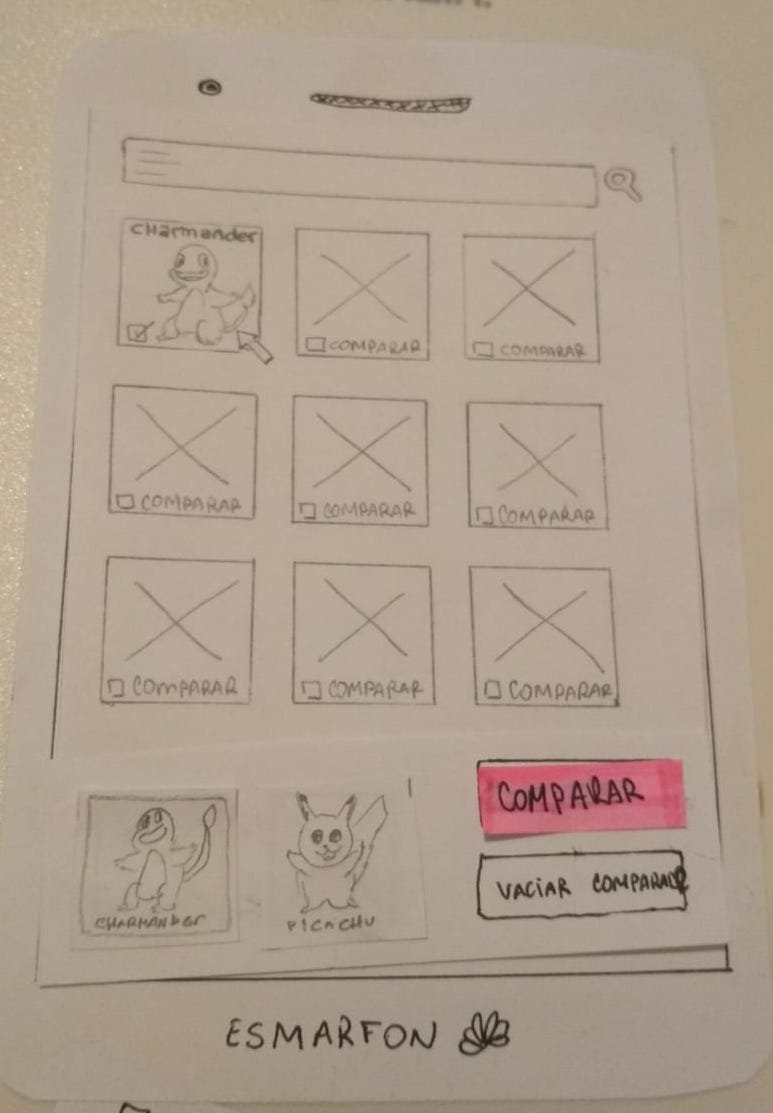 CHarmander
COMPARAR
COMPARAR
COMPARAR
COMPARAR
COMPARAR
COMPARAR
COMPARAR
COMPARAR
CHARMANDER
PICACHU
COMPARAR
VACIAR COMPARADOR
ESMARFON